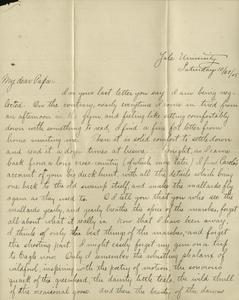 Yale University
Saturday 10/
My dear Papa:
In your last letter you say I am being neg-
lected. On the contrary, nearly everytime I come in tired from
an afternoon in the gym, and feeling like sitting comfortably
down with something to read, I find a fine fat letter from
home awaiting me. Then it is solid comfort to settle down
and read it a dozen times at leisure. Tonight, as I came
back from a long cross country (of which more later) I find Carl's
account of your big duck hunt, with all the details which bring
one back to the old swamp itself and make the mallards fly
again as they used to. I tell you that you who see the
mallards yearly and yearly breathe the air of the marshes, forget
all about what it really is. Now that I have been away
I think of only the best things of the marshes, and forget
the shooting part. I might easily forget my gun on a trip
to Eagle now. Only I remember the whistling squads of
wildfowl, inspiring with the poetry of motion, the sonorous
quack of the greenhead, the dainty little teals, the wild thrill
of the occasional goose. And then the beauty of the dawns